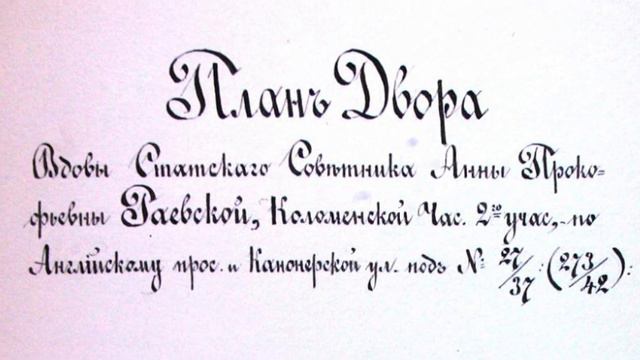 Планъ Двора
Вдовы Статскаго Совѣтника Анны Проко=
фьевны Раевской, Коломенской Час. 2го учас, по
Англійскому прос. и Канонерской ул. подъ № 27/37 (273/42):